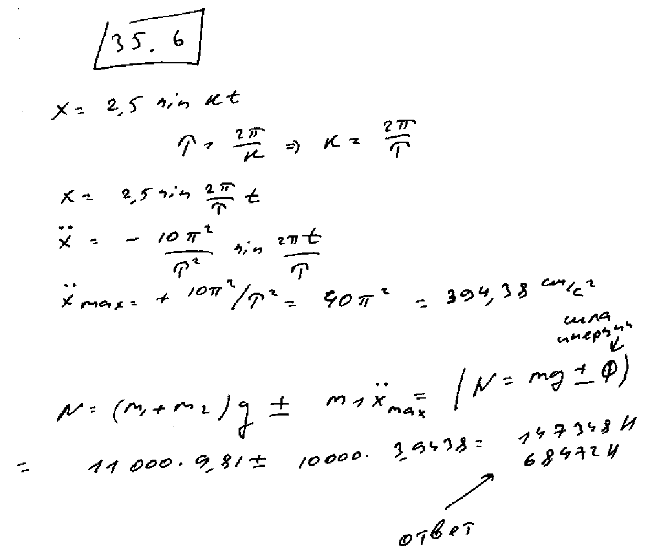 35.6
x = 2,5 sin kt
T = 2π/k ⇒ k = 2π/T
x = 2,5 sin 2π/T t
ẍ = - 10π²/T² sin 2πt/T
ẍ max = + 10π²/T² = 40π² = 394,38 см/с²
сила
инерции
N = (m₁+m₂)g ± m₁ẍmax = (N = mg ± Ф)
= 11000·9,81 ± 10000·3,9438 = 147348 Н
68472 Н
ответ